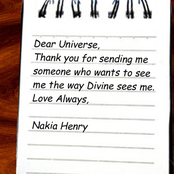 Dear Universe,
Thank you for sending me
someone who wants to see
me the way Divine sees me.
Love Always,
Nakia Henry